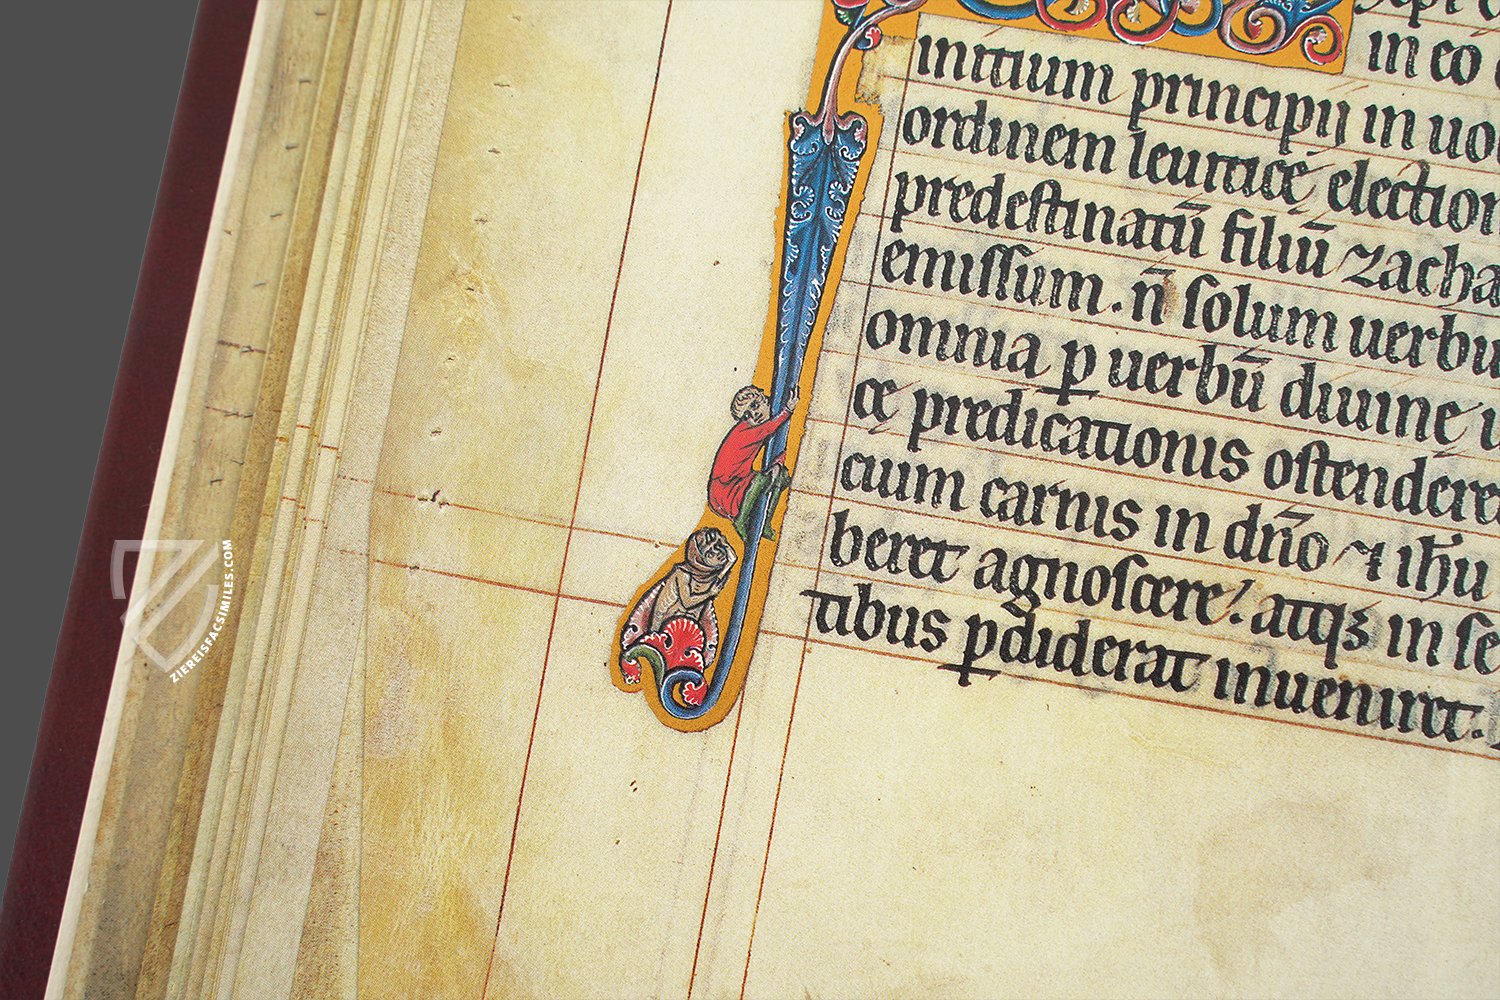 in eo
initium principij in uo
ordinem leuiticę election
predestinatū filiū zacha
emissum. n̄ solum uerbu
omnia ꝑ uerbū diuine
cę predicationis ostendere
cium carnis in dn̄o ⁊ ih̄u
beret agnoscere! atqꝫ in se
tibus ꝑdiderat inueniret.
ZIEREISFACSIMILES.COM